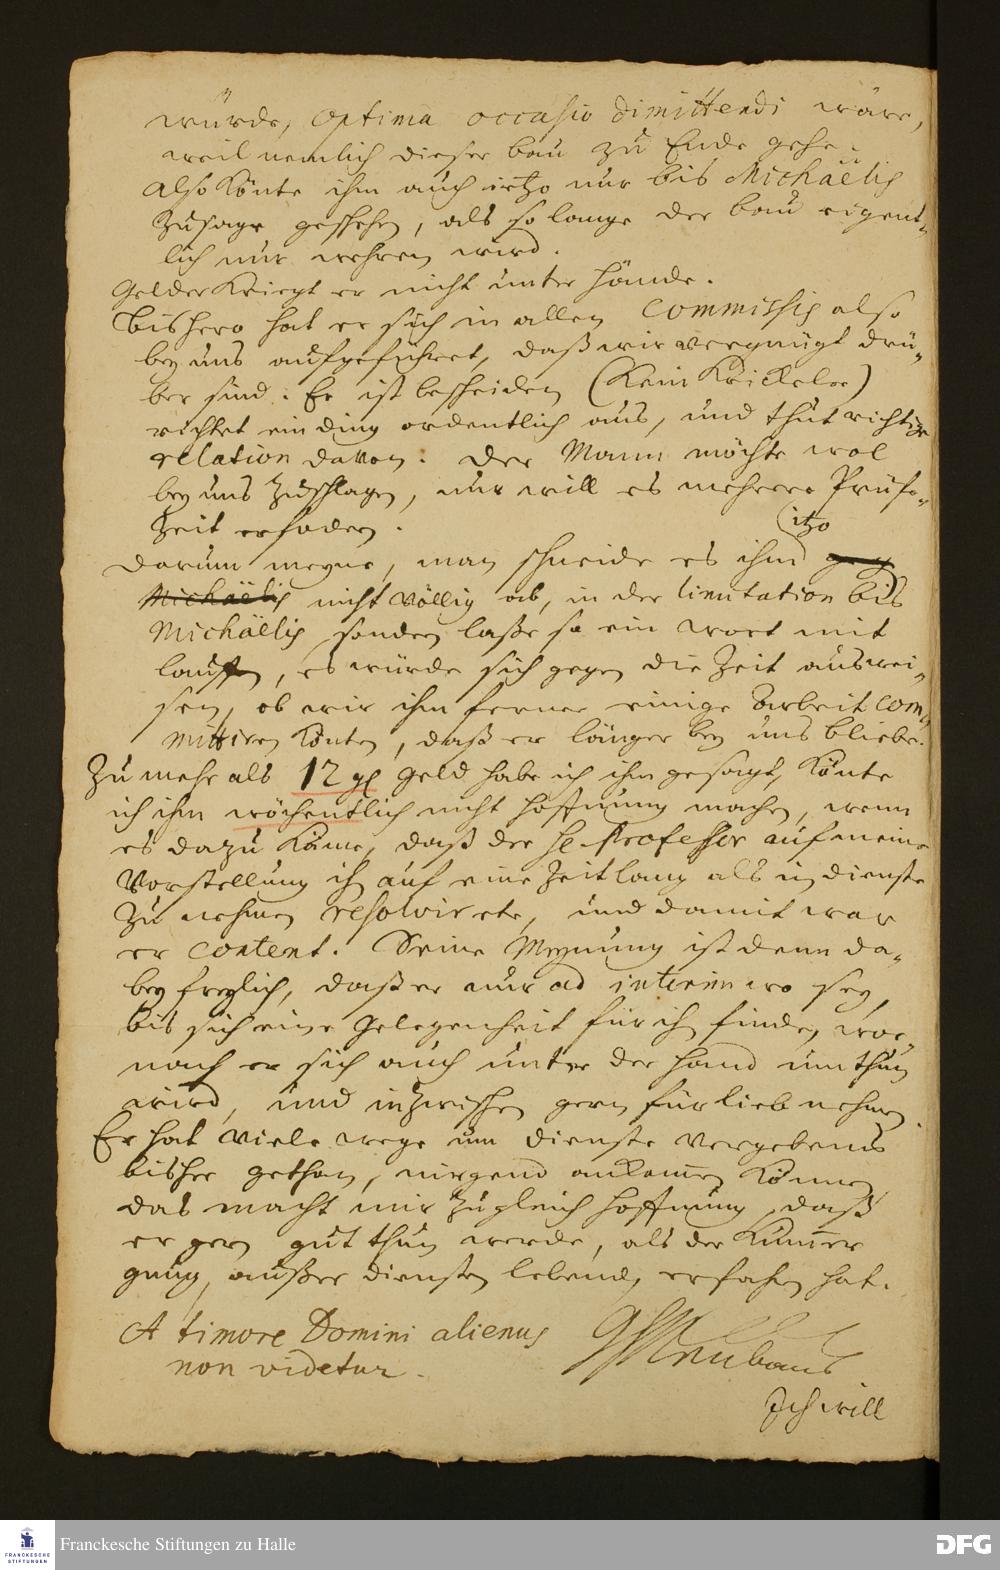 würde, optima occasio dimittendi wäre,
weil nemlich dieser bau zu Ende gehe.
Also könte ihm auch itzo nur bis Michaëlis
Zusage geschehen, als so lange der bau eigent-
lich nur wehren wird.
Gelder kriegt er nicht unter Hände.
Bishero hat er sich in allen Commissis also
bey uns aufgeführet, daß wir vergnügt drü-
ber sind. Er ist bescheiden (kein Krickeler)
richtet ein ding ordentlich aus, und thut richtige
relation davon. Der Mann möchte wol
bey uns zuschlagen, nur will es mehrere Prüfe-
Zeit erfodern.
itzo
Darum meyne, man schneide es ihm
Michaëlis nicht völlig ab, in der limitation bis
Michaëlis, sondern laße so ein wort mit
lauffen, es würde sich gegen die Zeit auswei-
sen, ob wir ihm ferner einige Arbeit com-
mittiren könten, daß er länger bey uns bliebe.
Zu mehr als 12 gl Geld habe ich ihm gesagt, könte
ich ihm wöchentlich nicht hoffnung machen, wenn
es dazu käme, daß der H. Professor auf meine
Vorstellung ihn auf eine Zeitlang als in dienste
zu nehmen resolvirete, und damit war
er content. Seine Meynung ist denn da-
bey freylich, daß er nur ad interim wo sey,
bis sich eine Gelegenheit für ihn finde, wor-
nach er sich auch unter der Hand umthun
wird, und inzwischen gern fürlieb nehmen
Er hat viele wege um dienste vergebens
bisher gethan, nirgend ankommen können,
das macht mir zugleich hoffnung, daß
er gern gut thun werde, als der Kummer
gnug, außer diensten lebend, erfahren hat.
A timore Domini alienus
non videtur.
GHNeubauer
Ich will
Franckesche Stiftungen zu Halle
FRANCKESCHE
STIFTUNGEN
DFG